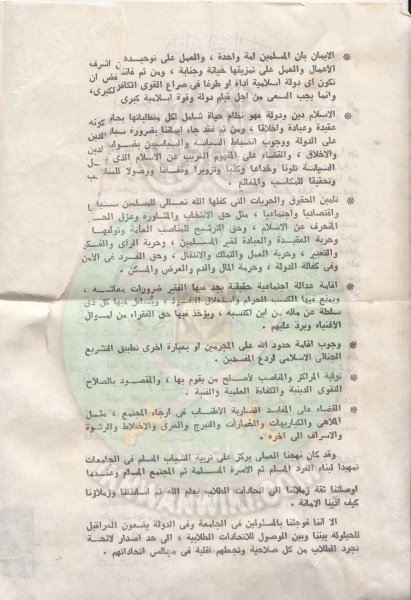 * الايمان بأن المسلمين امة واحدة ، والعمل على توحيدهم اشرف
الأعمال والعمل على تمزيقها خيانة وجناية ، ومن ثم فاننا نرفض أن
تكون أى دولة اسلامية اداة او طرفا فى صراع القوى الكافر الكبرى،
وانما يجب السعى من اجل قيام دولة وقوة اسلامية كبرى
* الاسلام دين ودولة فهو نظام حياة شامل لكل متطلباتها بحكم كونه
عقيدة وعبادة واخلاقا ، ومن ثم فقد جاء ايماننا بضرورة سيادة الدين
على الدولة ووجوب انضباط السياسة والسياسيين بضوابط الدين
والاخلاق ، والقضاء على المفهوم الغريب عن الاسلام الذى
السياسة تلونا وخداعا وكذبا وتزويرا ونفاقا ووصولا للمناصب
وتحقيقا للمكاسب والمغانم .
* تأمين الحقوق والحريات التى كفلها الله تعالى للمسلمين سياسيا
واقتصاديا واجتماعيا ، مثل حق الانتخاب والمشاورة وعزل
المنحرف عن الاسلام ، وحق الترشيح للمناصب العامة وتوليها
وحرية العقيدة والعبادة لغير المسلمين ، وحرية الرأى والفكر
والتعبير ، وحرية العمل والتملك والانتقال ، وحق الفرد فى الأمن
وفى كفالة الدولة ، وحرمة المال والدم والعرض والمسكن .
* اقامة عدالة اجتماعية حقيقية يجد فيها الفقير ضرورات معاشه ،
ويمنع فيها الكسب الحرام واستغلال النفوذ ، ويسائل فيها كل ذى
سلطة عن ماله من اين اكتسبه ، ويؤخذ فيها حق الفقراء من اموال
الأغنياء ويرد عليهم .
* وجوب اقامة حدود الله على المجرمين او بعبارة اخرى تطبيق التشريع
الجنائى الاسلامى لردع المفسدين .
* تولية المراكز والمناصب لأصلح من يقوم بها ، والمقصود بالصلاح
التقوى الدينية والكفاءة العلمية والفنية .
* القضاء على المفاسد الضاربة الأطناب فى ارجاء المجتمع ، مثل
الملاهى والكباريهات والخمارات والتبرج والعرى والاختلاط والرشوة
والاسراف الى آخره .
وقد كان نهجنا العملى يركز على تربية الشباب المسلم فى الجامعات
تمهيدا لبناء الفرد المسلم ثم الاسرة المسلمة ثم المجتمع المسلم وعندما
اوصلتنا ثقة زملائنا الى اتحادات الطلاب يعلم الله ثم أساتذتنا وزملاؤنا
كيف أدينا الامانة .
الا اننا فوجئنا بالمسئولين فى الجامعة وفى الدولة يضعون العراقيل
للحيلولة بيننا وبين الوصول للاتحادات الطلابية ، الى حد اصدار لائحة
تجرد الطلاب من كل صلاحية وتجعلهم اقلية فى مجالس اتحاداتهم .